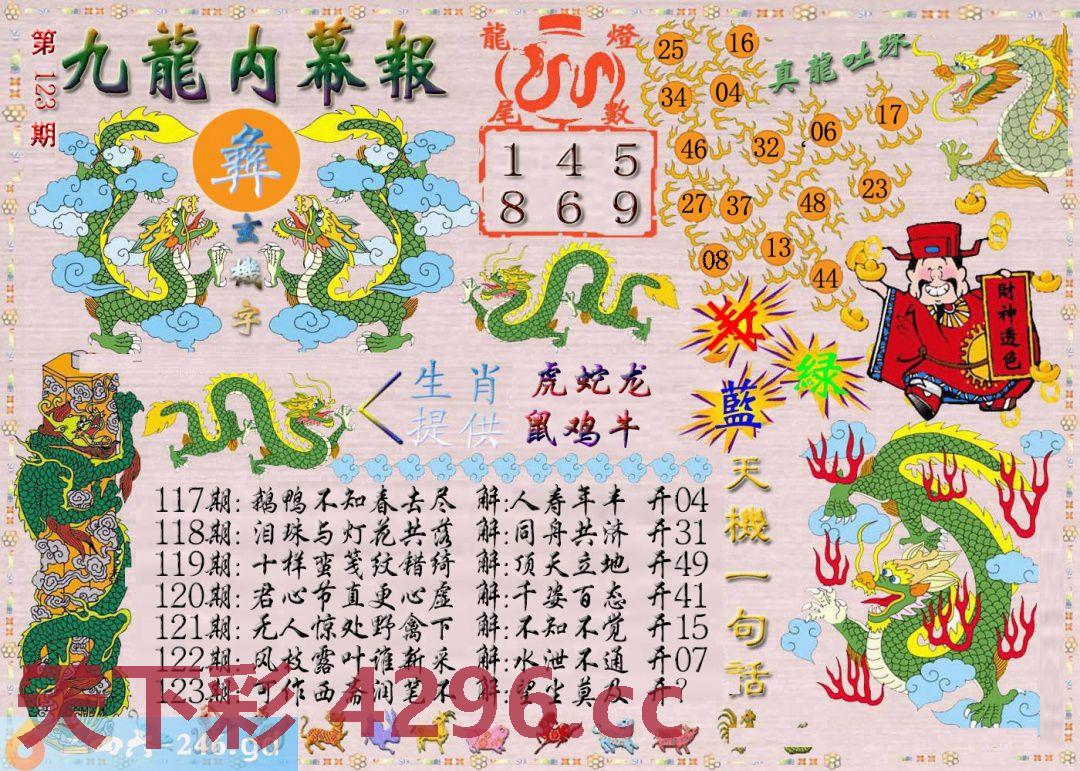 第123期
九龍内幕報
彝
玄機字
龍燈
尾數
1 4 5
8 6 9
真龍吐珠
25 16
34 04
46 32 06 17
27 37 48 23
08 13 44
財神透色
红
綠
藍
生肖提供
虎蛇龙
鼠鸡牛
天機一句話
117期:鹅鸭不知春去尽 解:人寿年丰 开04
118期:泪珠与灯花共落 解:同舟共济 开31
119期:十样蛮笺纹错绮 解:顶天立地 开49
120期:君心节直更心虚 解:千姿百态 开41
121期:无人惊处野禽下 解:不知不觉 开15
122期:风枝露叶谁新采 解:水泄不通 开07
123期:可作西斋润笔不 解:望尘莫及 开?
天下彩 4296.cc
=246.gd